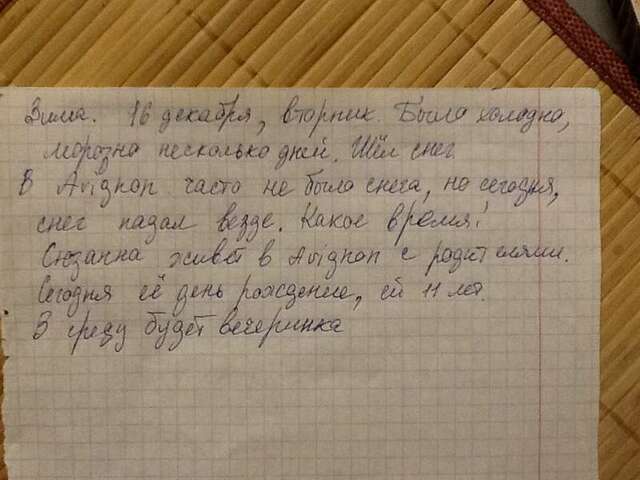 Зима. 16 декабря, вторник. Было холодно,
морозно несколько дней. Шёл снег
В Avignon часто не было снега, но сегодня,
снег падал везде. Какое время!
Сюзанна живёт в Avignon с родителями.
Сегодня её день рождение, ей 11 лет.
В среду будет вечеринка